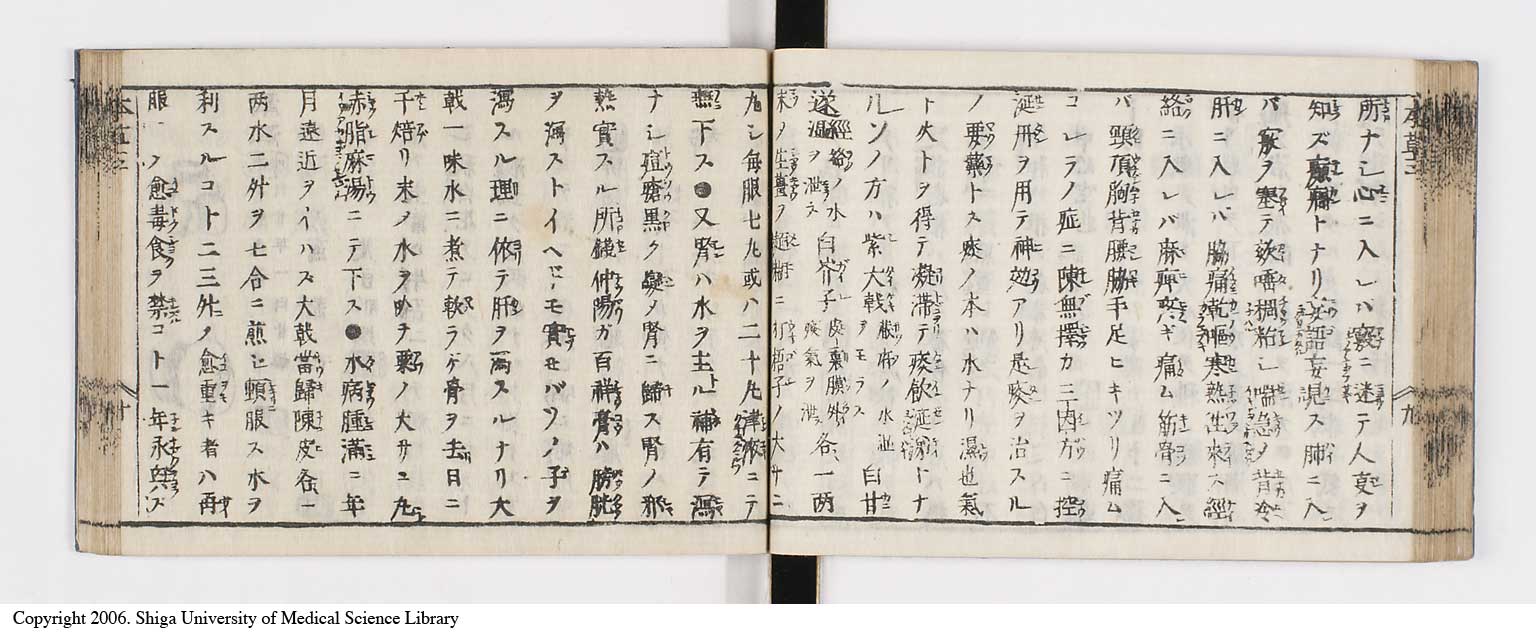 所ナシ心ニ入レハ竅ニ迷テ人支ヲ
知ズ癲癇トナリ妄語妄見ス肺ニ入
バ竅ヲ塞テ欬嗽稠粘シ喘急シ背冷
肝ニ入レバ脇痛乾嘔寒熱往來ス經
絡ニ入レバ麻痺シ痛ム筋骨ニ入
バ頸項胸背腰脇手足ヒキツリ痛ム
コレラノ症ニ陳無擇カ三因方ニ控
涎丹ヲ用テ神効アリ是痰ヲ治スル
ノ要藥トス痰ノ本ハ水ナリ濕也氣
ト火トヲ得テ凝滞テ痰飲涎トナ
ルソノ方ハ紫大戟 臓府ノ水ヲモラス 白甘
遂 經絡ノ水濕ヲ泄ス 白芥子 皮裏膜外ノ痰氣ヲ泄 各一両
末ヲ生薑ヲ ニ 梧子ノ大サニ
丸シ毎服七丸或ハ二十丸津液ニテ
下ス●又腎ハ水ヲ主ル補有テ瀉
ナシ痘瘡黒ク變メ腎ニ歸ス腎ノ邪
熱實スル所錢仲陽ガ百祥膏ハ膀胱
ヲ瀉ストイヘドモ實セバソノ子ヲ
瀉スル理ニ依テ肝ヲ瀉スルナリ大
戟一味水ニ煮テ軟ラゲ骨ヲ去日ニ
干焙リ末ノ水ヲ吹テ粟ノ大サニ丸
赤脂麻湯ニテ下ス●水病腫満ニ年
月遠近ヲイハズ大戟當歸陳皮各一
両水二升ヲ七合ニ煎ジ頓服ス水ヲ
利スルコト二三升メ愈重キ者ハ再
服メ愈毒食ヲ禁コト一年永與ズ
本草三
九
十
Copyright 2006. Shiga University of Medical Science Library